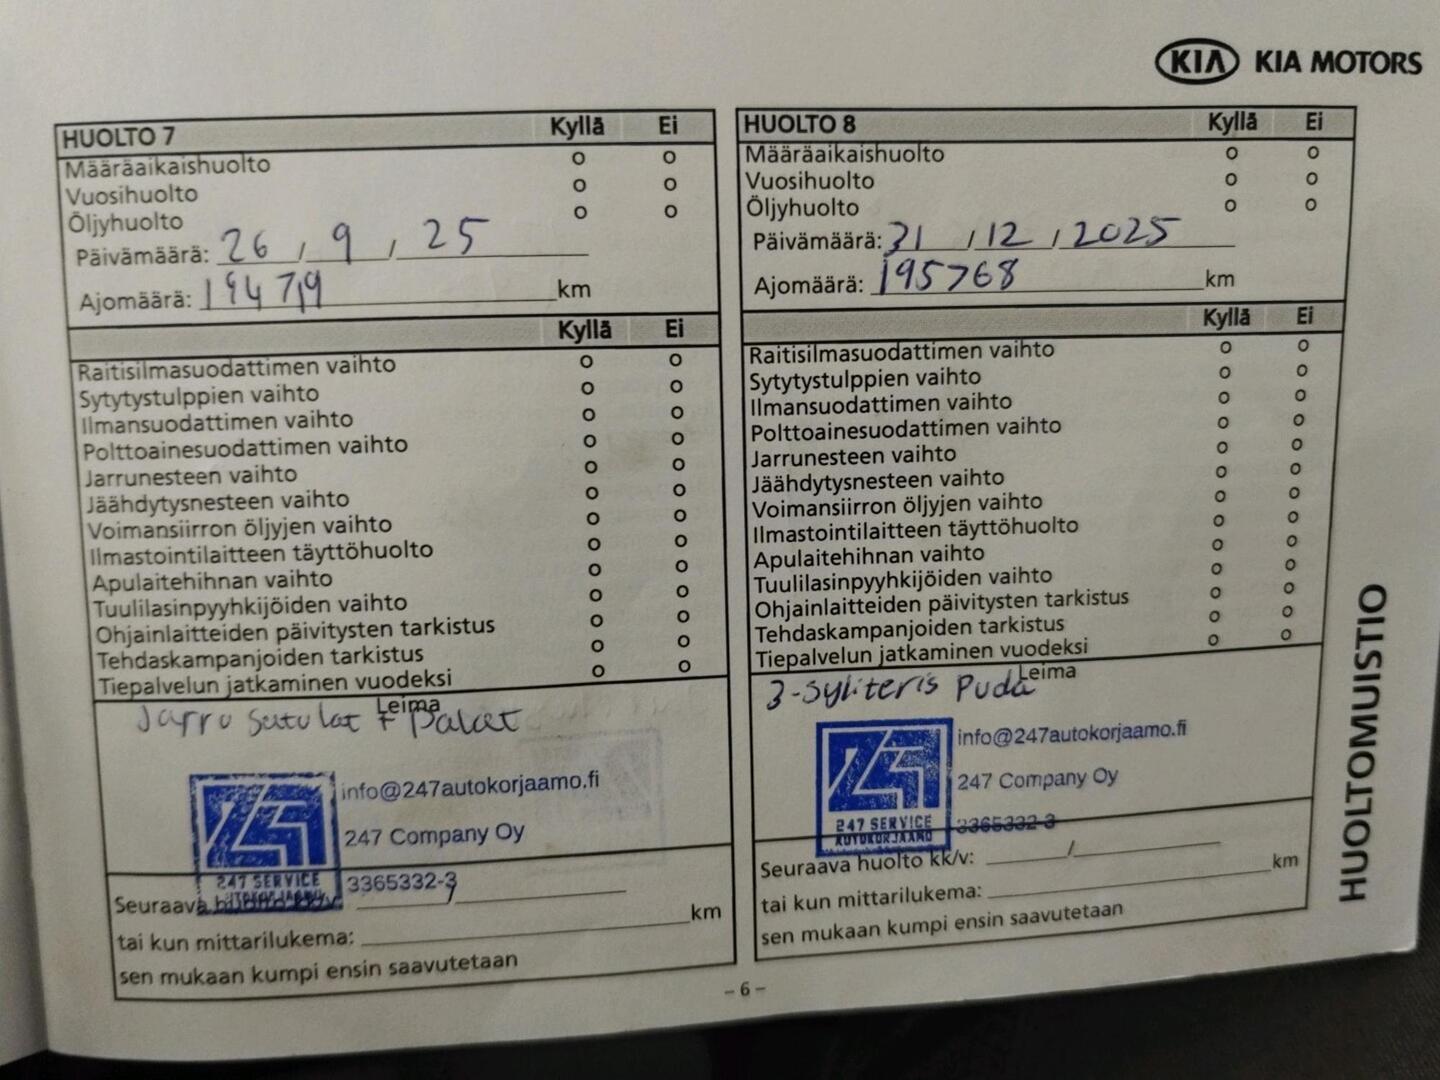 KIA KIA MOTORS
HUOLTO 7 Kyllä Ei
Määräaikaishuolto o o
Vuosihuolto o o
Öljyhuolto o o
Päivämäärä: 26 / 9 / 25
Ajomäärä: 194719 km
Kyllä Ei
Raitisilmasuodattimen vaihto o o
Sytytystulppien vaihto o o
Ilmansuodattimen vaihto o o
Polttoainesuodattimen vaihto o o
Jarrunesteen vaihto o o
Jäähdytysnesteen vaihto o o
Voimansiirron öljyjen vaihto o o
Ilmastointilaitteen täyttöhuolto o o
Apulaitehihnan vaihto o o
Tuulilasinpyyhkijöiden vaihto o o
Ohjainlaitteiden päivitysten tarkistus o o
Tehdaskampanjoiden tarkistus o o
Tiepalvelun jatkaminen vuodeksi o o
Leima
Jarru satulat + palat
info@247autokorjaamo.fi
247 Company Oy
247 SERVICE
3365332-3
Seuraava huolto kk/v: /
km
tai kun mittarilukema:
sen mukaan kumpi ensin saavutetaan
HUOLTO 8 Kyllä Ei
Määräaikaishuolto o o
Vuosihuolto o o
Öljyhuolto o o
Päivämäärä: 31 / 12 / 2025
Ajomäärä: 195768 km
Kyllä Ei
Raitisilmasuodattimen vaihto o o
Sytytystulppien vaihto o o
Ilmansuodattimen vaihto o o
Polttoainesuodattimen vaihto o o
Jarrunesteen vaihto o o
Jäähdytysnesteen vaihto o o
Voimansiirron öljyjen vaihto o o
Ilmastointilaitteen täyttöhuolto o o
Apulaitehihnan vaihto o o
Tuulilasinpyyhkijöiden vaihto o o
Ohjainlaitteiden päivitysten tarkistus o o
Tehdaskampanjoiden tarkistus o o
Tiepalvelun jatkaminen vuodeksi o o
Leima
3-syliteris Puda
info@247autokorjaamo.fi
247 Company Oy
247 SERVICE
AUTOKORJAAMO
3365332-3
Seuraava huolto kk/v: /
km
tai kun mittarilukema:
sen mukaan kumpi ensin saavutetaan
HUOLTOMUISTIO
– 6 –